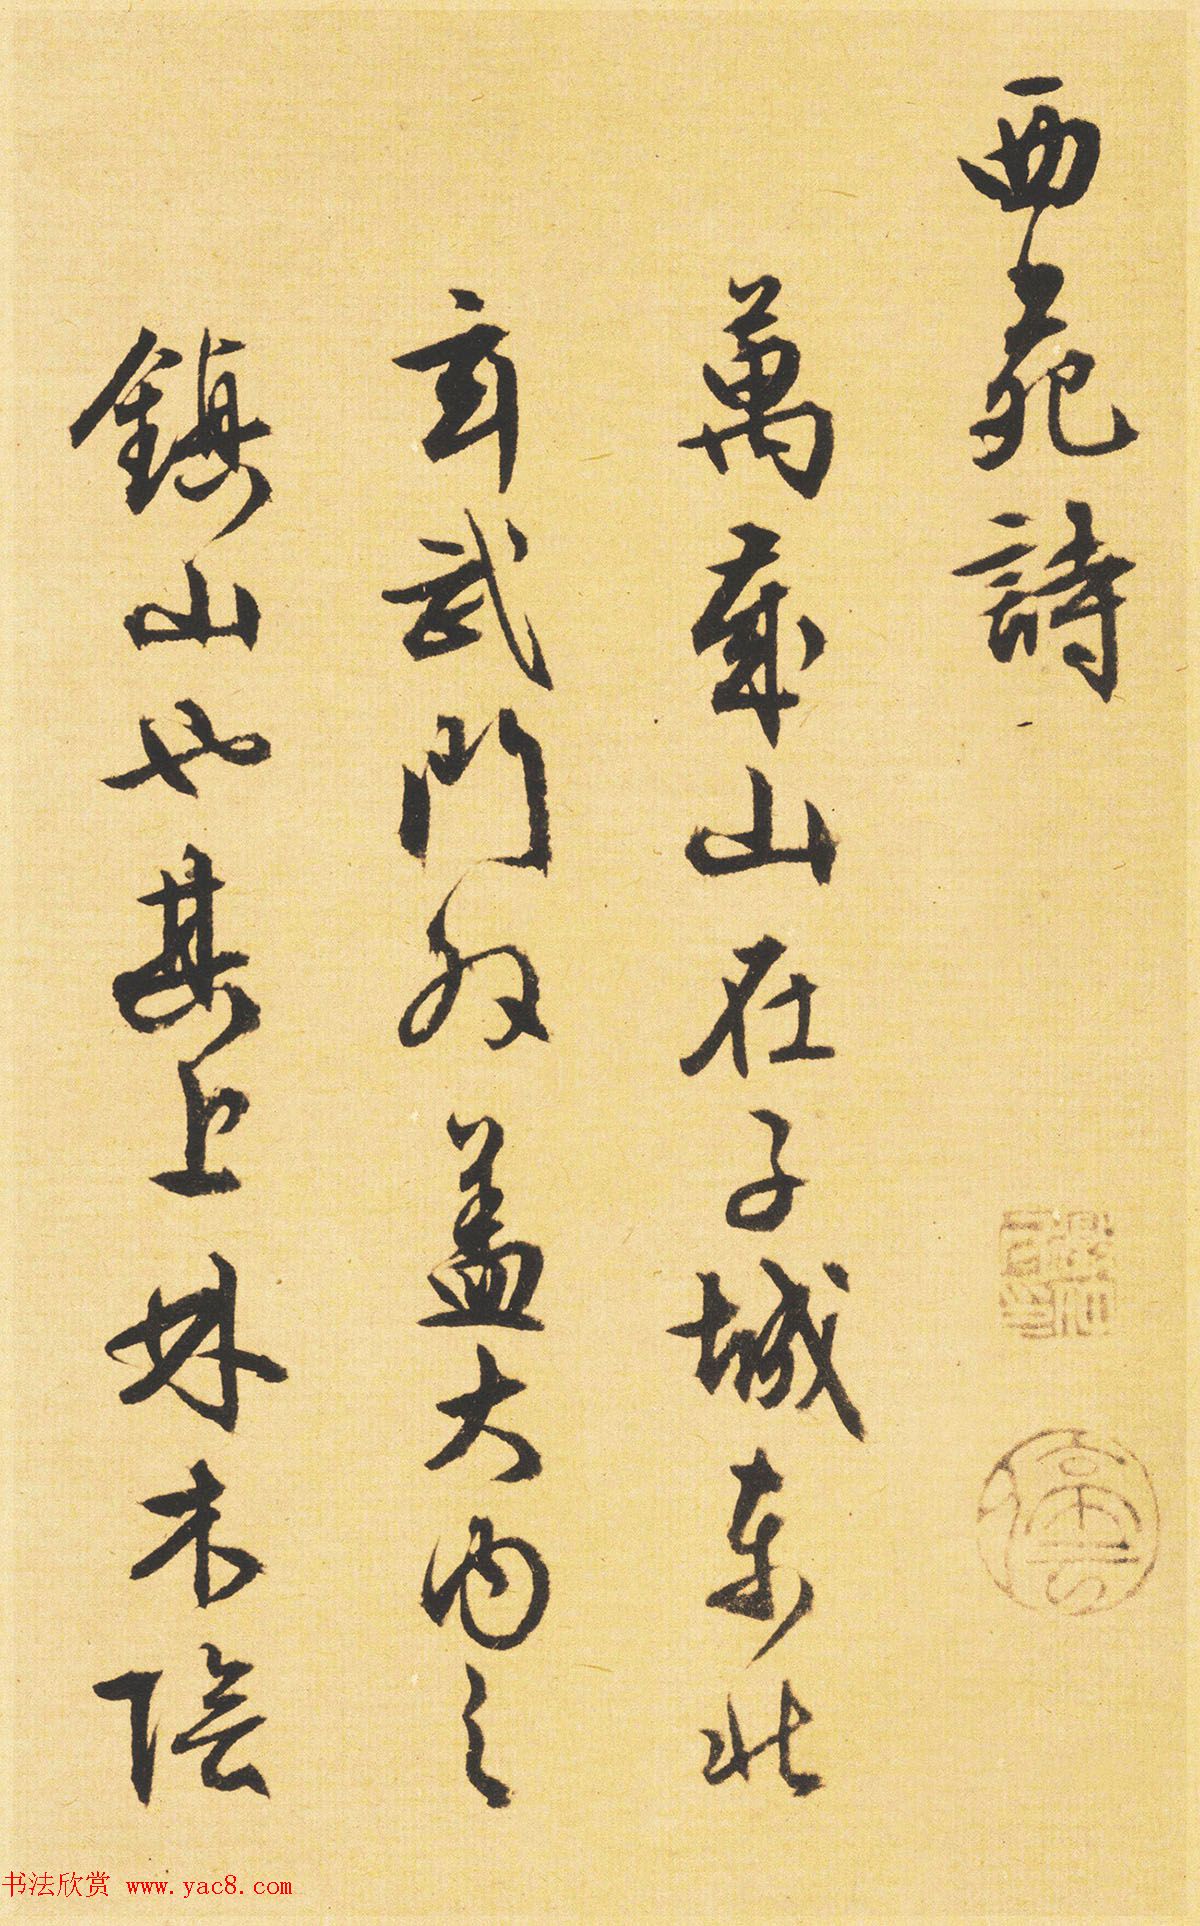 西苑詩
萬歲山在子城東北
玄武門外蓋大內之
鎮山也其上林木陰
书法欣赏 www.yac8.com